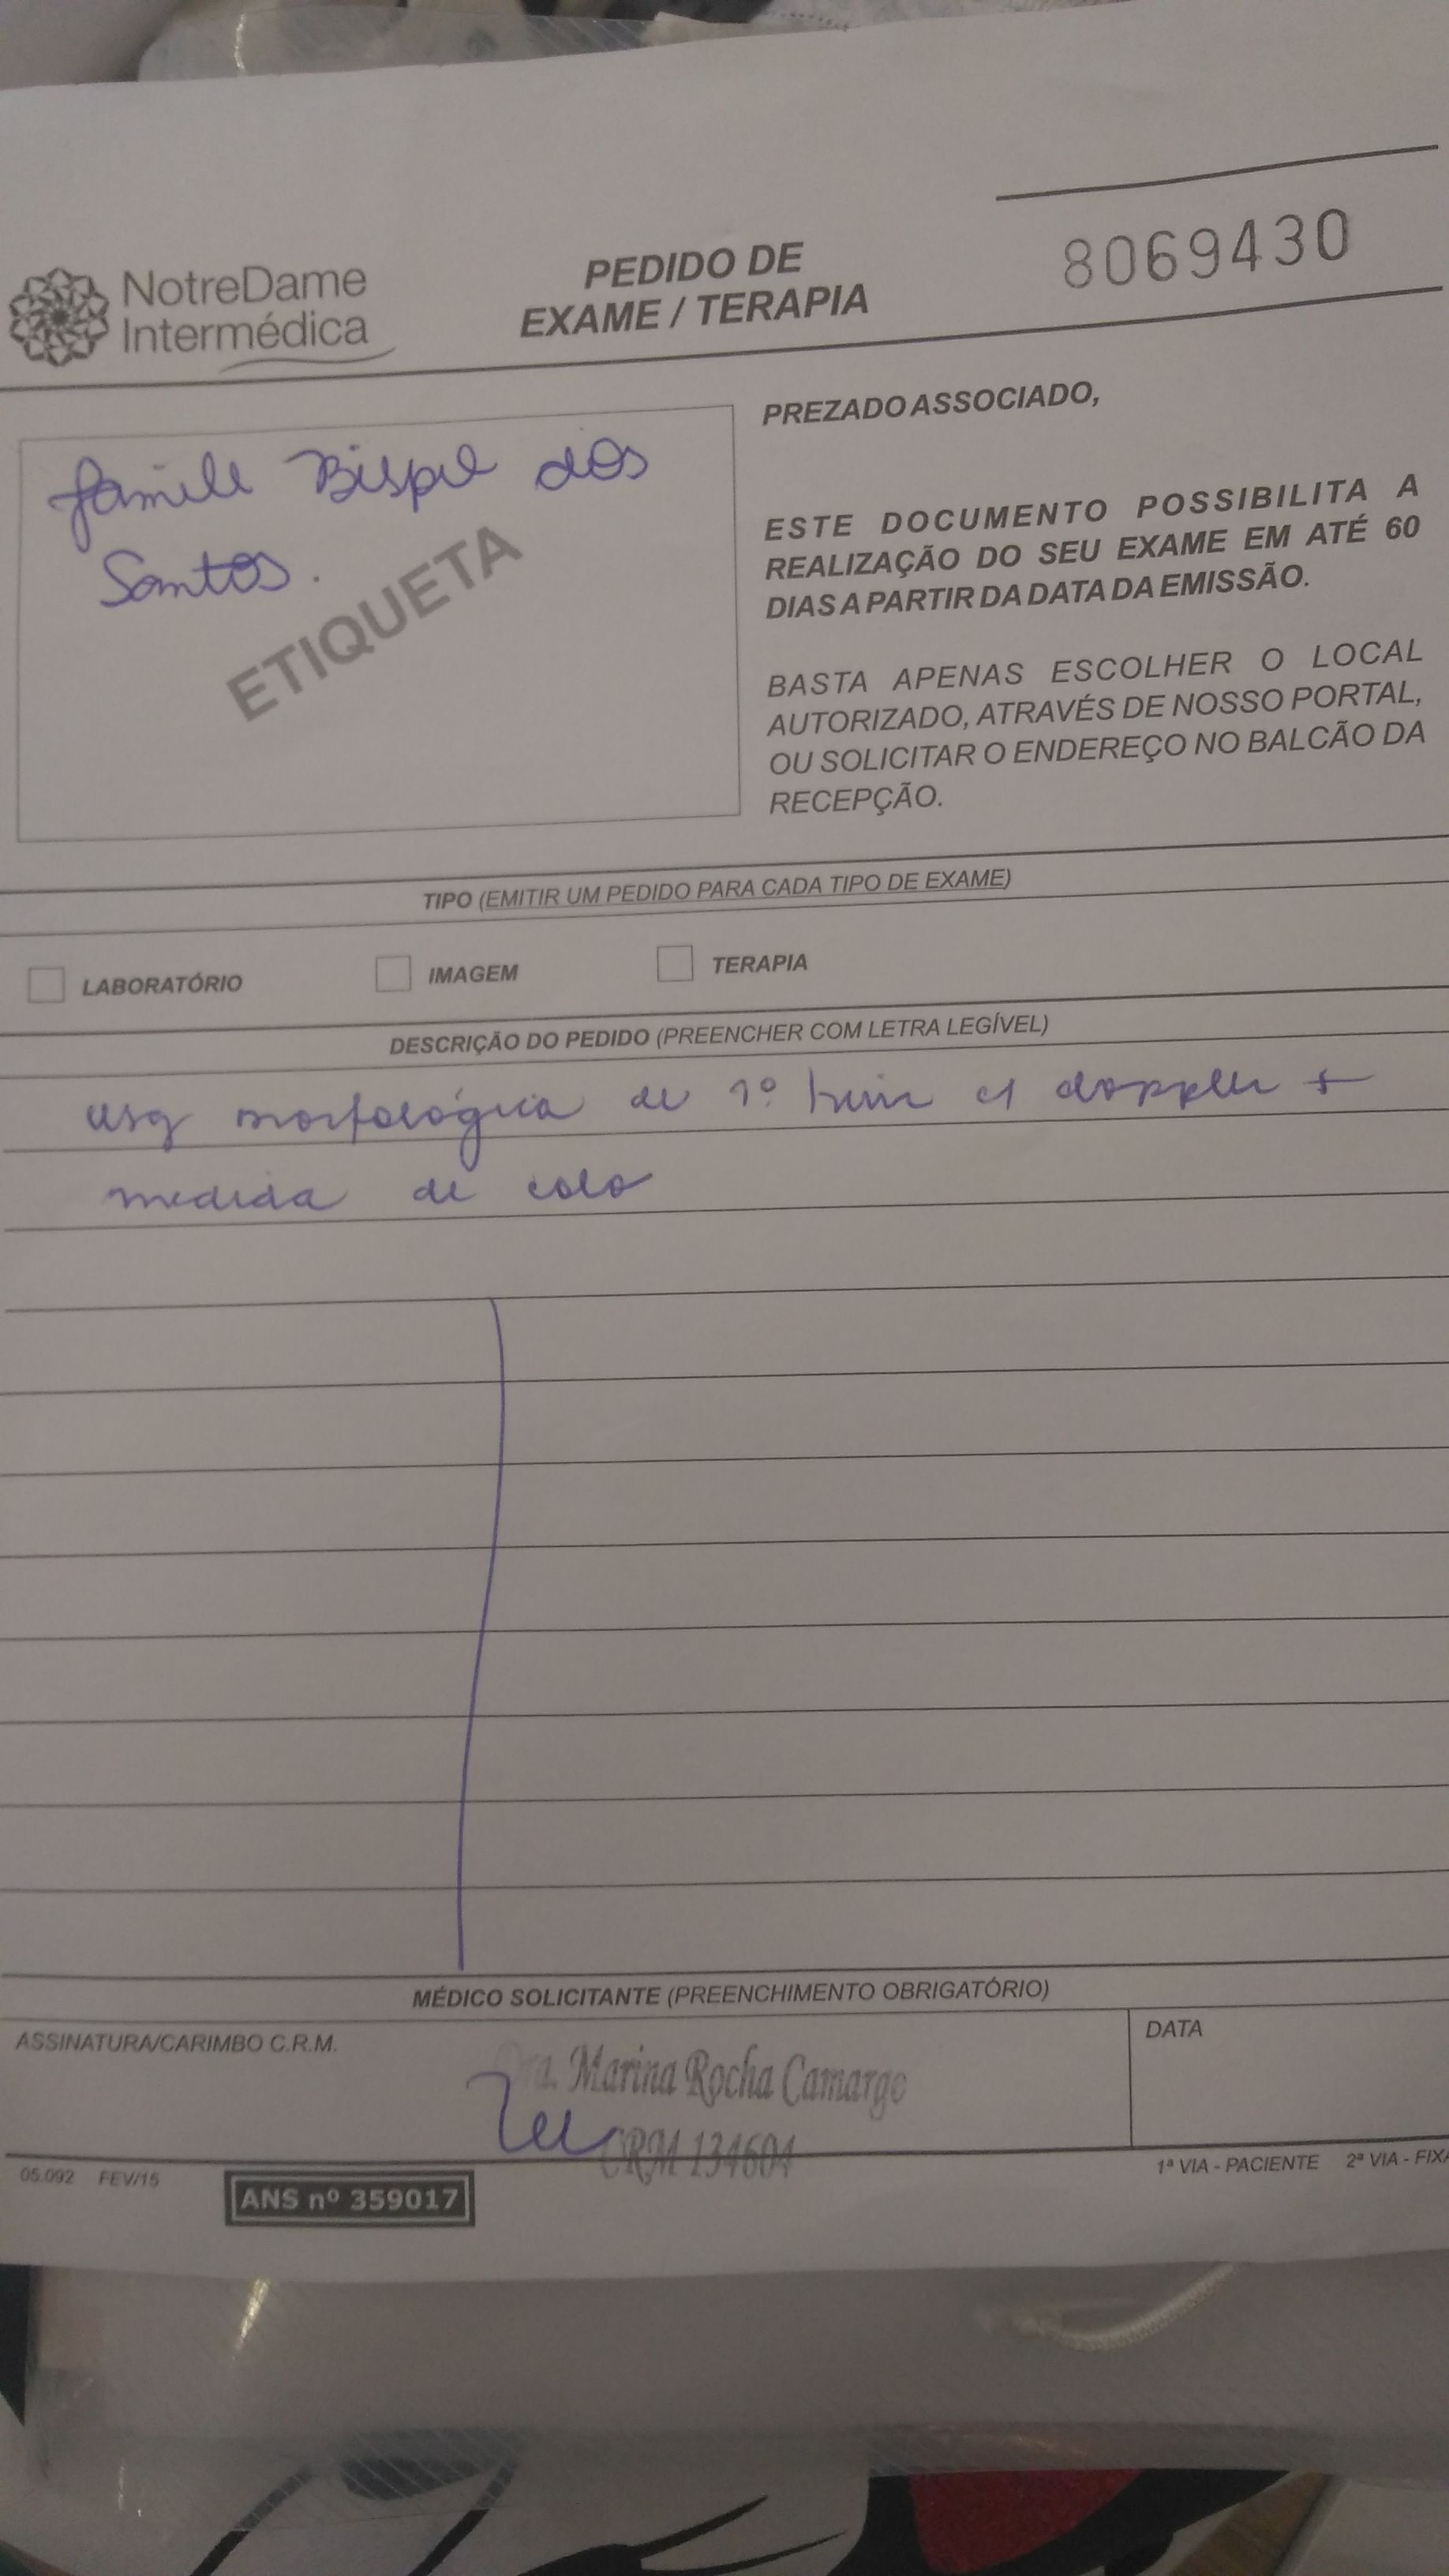 NotreDame
Intermédica
PEDIDO DE
EXAME / TERAPIA
8069430
Jamile Bispo dos
Santos.
ETIQUETA
PREZADO ASSOCIADO,
ESTE DOCUMENTO POSSIBILITA A
REALIZAÇÃO DO SEU EXAME EM ATÉ 60
DIAS A PARTIR DA DATA DA EMISSÃO.
BASTA APENAS ESCOLHER O LOCAL
AUTORIZADO, ATRAVÉS DE NOSSO PORTAL,
OU SOLICITAR O ENDEREÇO NO BALCÃO DA
RECEPÇÃO.
TIPO (EMITIR UM PEDIDO PARA CADA TIPO DE EXAME)
LABORATÓRIO IMAGEM TERAPIA
DESCRIÇÃO DO PEDIDO (PREENCHER COM LETRA LEGÍVEL)
usg morfológica de 1º trim c/ doppler +
medida de colo
MÉDICO SOLICITANTE (PREENCHIMENTO OBRIGATÓRIO)
ASSINATURA/CARIMBO C.R.M.
DATA
Dra. Marina Rocha Camargo
CRM 134604
05.092 FEV/15
ANS nº 359017
1ª VIA - PACIENTE 2ª VIA -